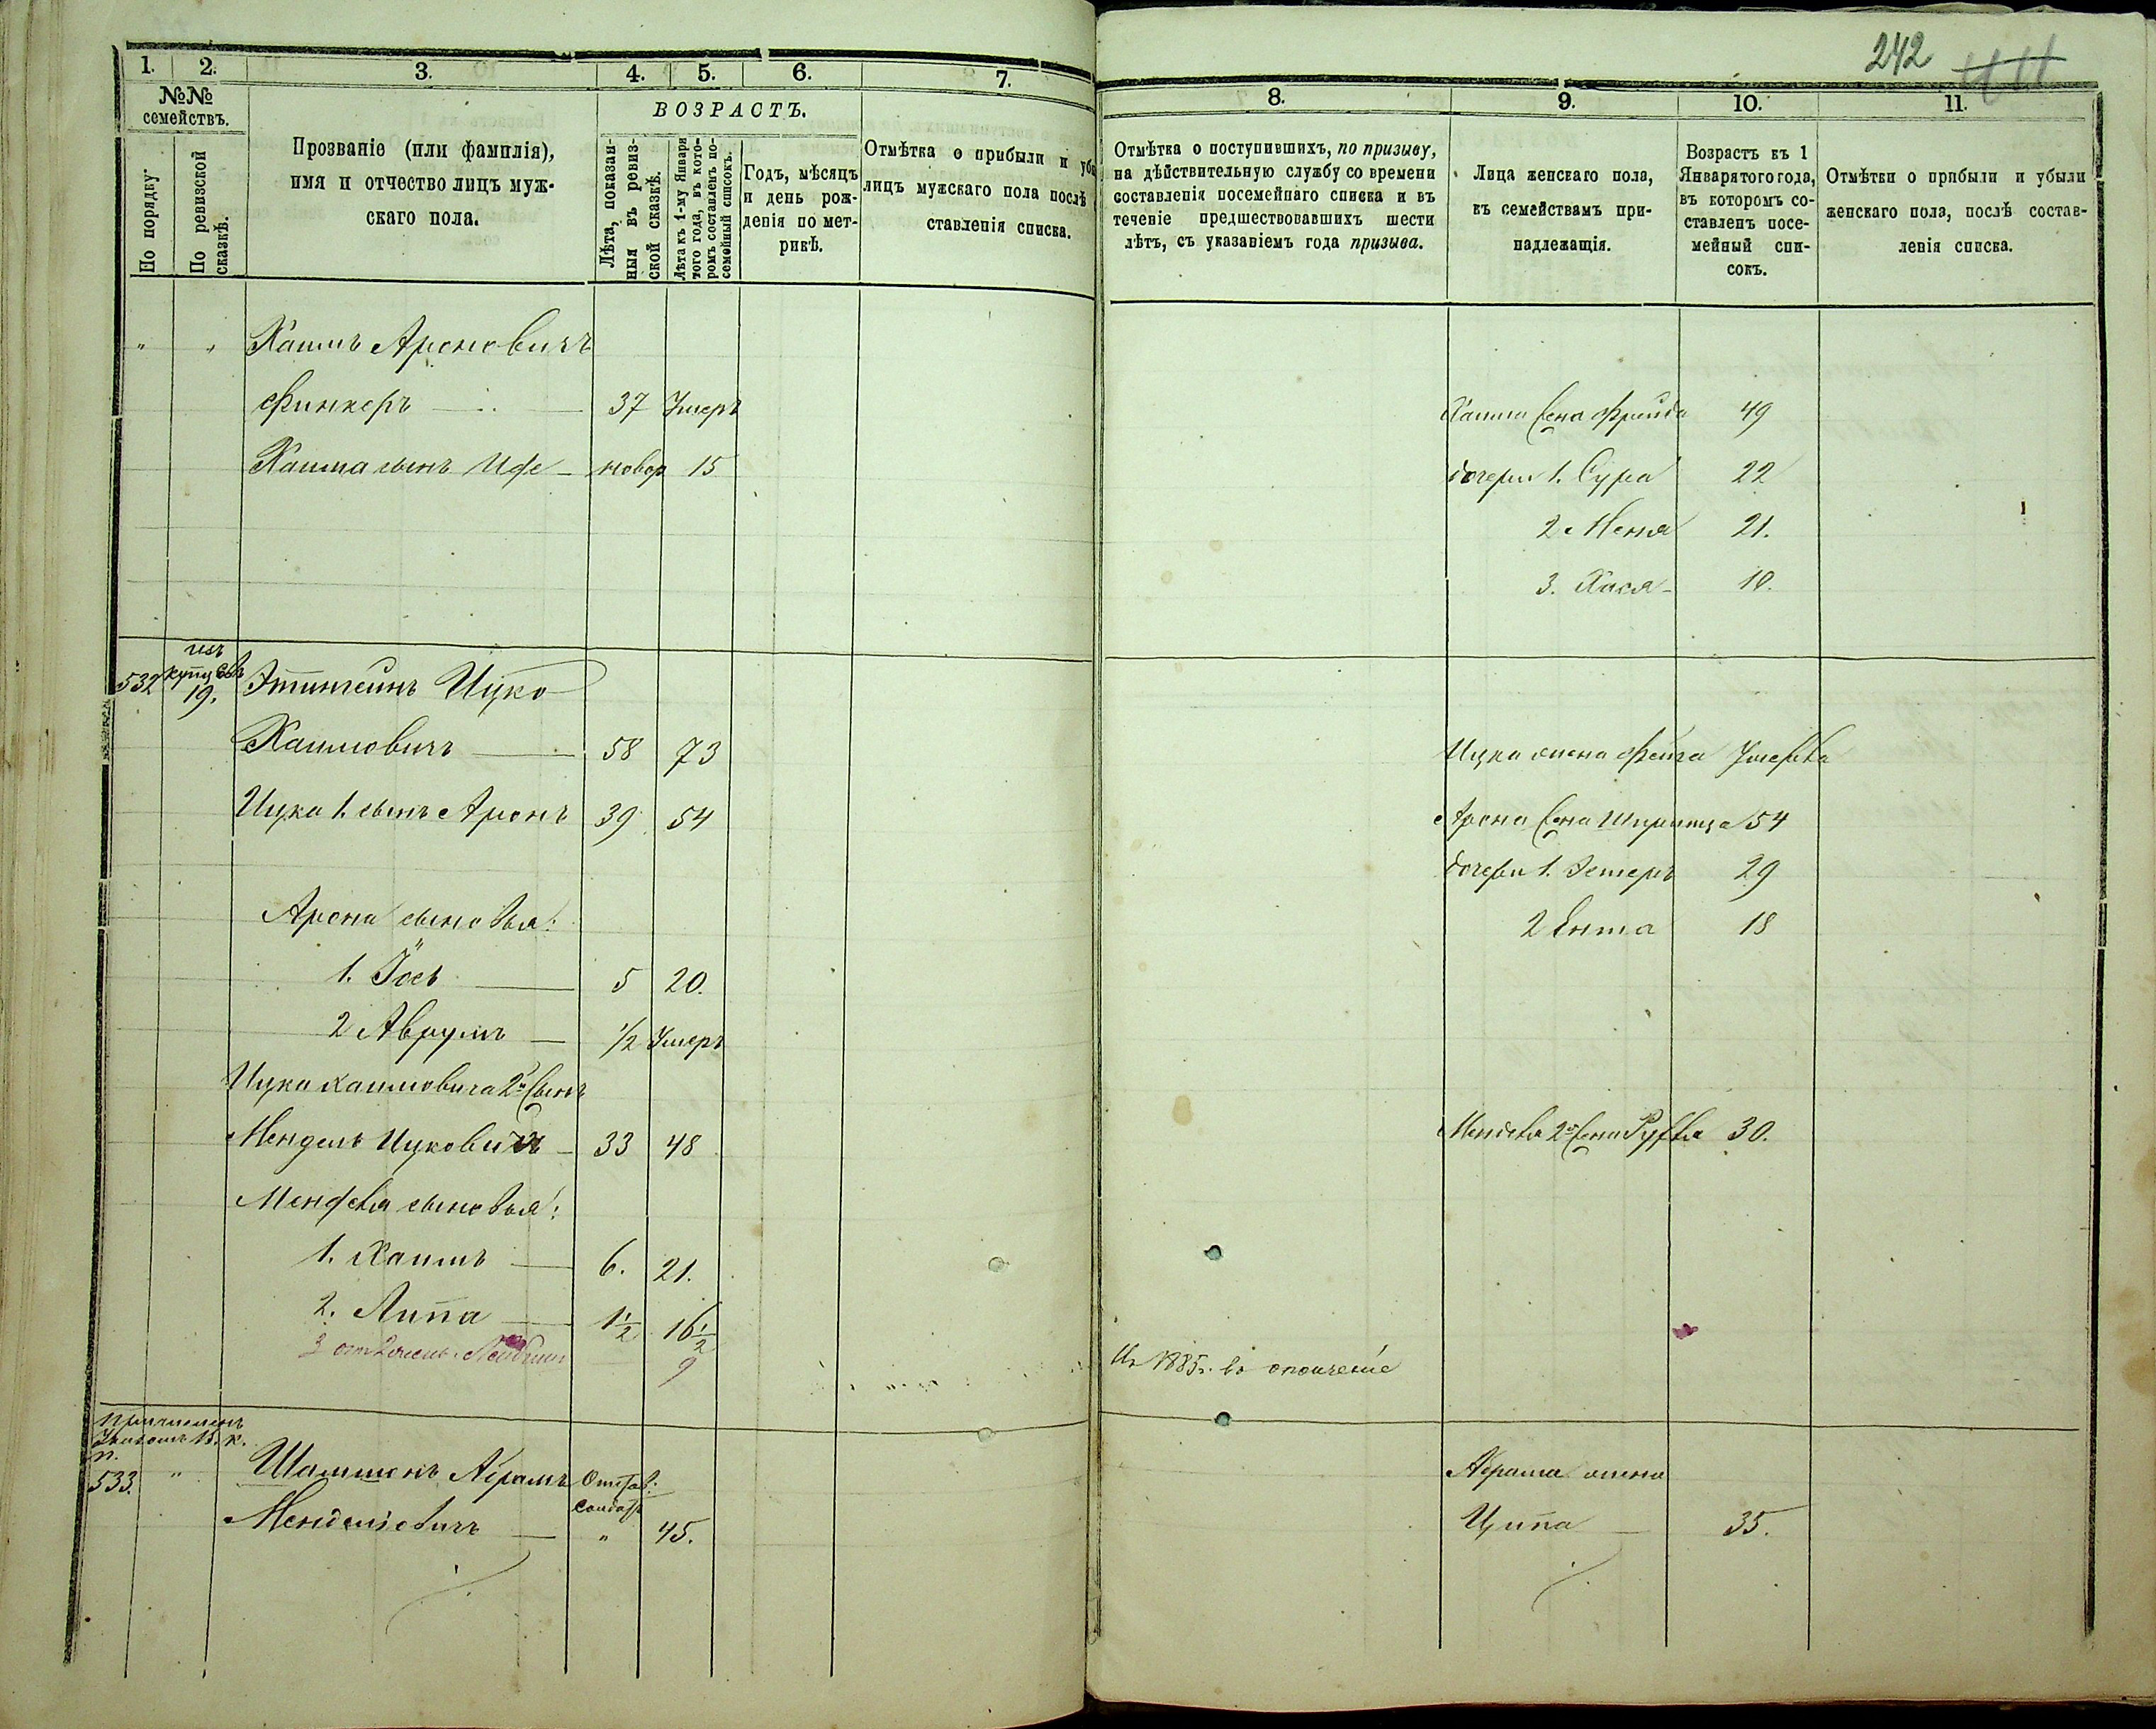 242
1. 2. 3. 4. 5. 6. 7.
№№ семействъ.
По порядку.
По ревизской сказкѣ.
Прозваніе (или фамилія),
имя и отчество лицъ муж-
скаго пола.
ВОЗРАСТЪ.
Лѣта, показан-
ныя въ ревиз-
ской сказкѣ.
Лѣта къ 1-му Января
того года, въ кото-
ромъ составленъ по-
семейный списокъ.
Годъ, мѣсяцъ
и день рож-
денія по мет-
рикѣ.
Отмѣтка о прибыли и убы
лицъ мужскаго пола послѣ
ставленія списка.
" " Хаимъ Ароновичъ
Финкеръ 37 Умеръ
Хаима сынъ новор 15
532 изъ купцовъ 19. Этингеинъ Ицко
Хаимовичъ 58 73
Ицка 1. сынъ Аронъ 39 54
Арона сыновья:
1. Іось 5 20.
2 Аврумъ 1/2 Умеръ
Ицка Хаимовича 2й сынъ
Мендель Ицковичъ 33 48
Менделя сыновья:
1. Хаимъ 6. 21.
2. Липа 1 1/2 16 1/2
3 9
причисленъ
Указомъ В. К.
П.
533. " Шамшонъ Абрамъ Отстав:
солдатъ
Менделіовичъ " 45.
8. 9. 10. 11.
Отмѣтка о поступившихъ, по призыву,
на дѣйствительную службу со времени
составленія посемейнаго списка и въ
теченіе предшествовавшихъ шести
лѣтъ, съ указаніемъ года призыва.
Лица женскаго пола,
къ семействамъ при-
надлежащія.
Возрастъ къ 1
Января того года,
въ которомъ со-
ставленъ посе-
мейный спи-
сокъ.
Отмѣтки о прибыли и убыли
женскаго пола, послѣ состав-
ленія списка.
Хаима жена Фрейда 49
дочери 1. Сура 22
2 Меня 21.
3. Хася 10.
Ицка жена Фейга Умерла
Арона жена Шпринца 54
дочери 1. Эстеръ 29
2 Ента 18
Менделя 2я жена Рухля 30.
1885г. въ ополченіе
Абрама жена
Ципа 35.